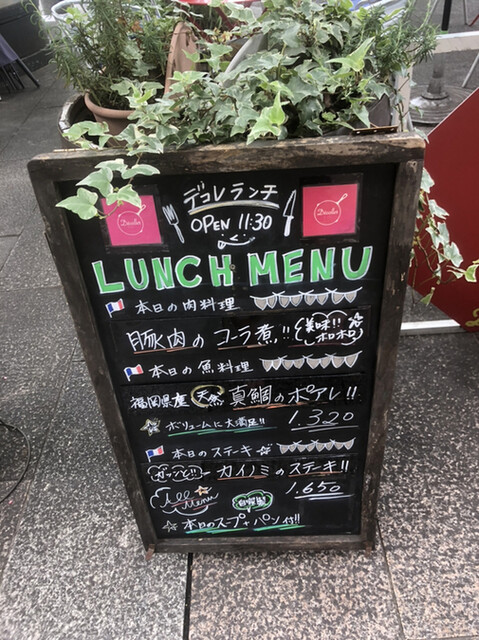 デコレランチ
OPEN 11:30
LUNCH MENU
本日の肉料理
豚肉のコーラ煮!! 美味!! ホロホロ
本日の魚料理
福岡県産 天然 真鯛のポアレ!!
ボリュームに大満足!! 1.320
本日のステーキ
ガツンと!! カイノミのステーキ!!
1.650
All Menu 自家製
本日のスープ、パン付!!